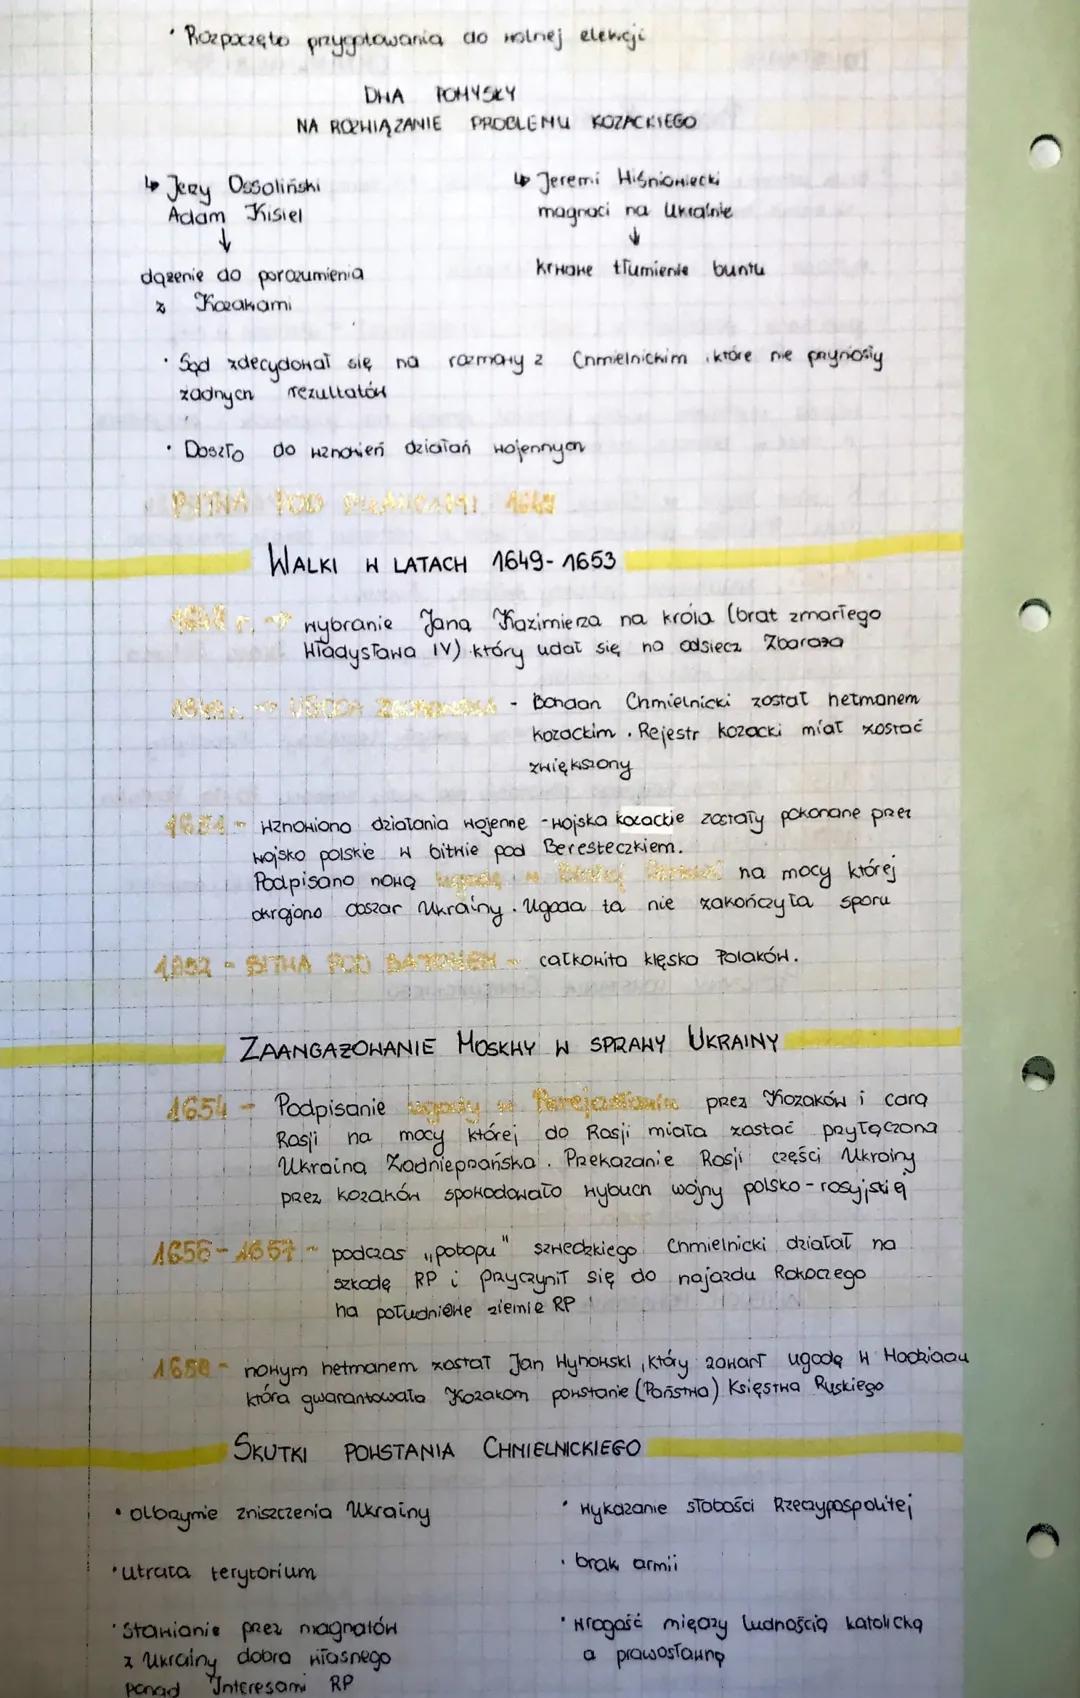 • Rozpoczęto przygotowania do wolnej elekcji
DWA POMYSŁY
NA ROZWIĄZANIE PROBLEMU KOZACKIEGO
↳ Jerzy Ossoliński
Adam Kisiel
↓
dążenie do porozumienia
z Kozakami
↳ Jeremi Wiśniowiecki
magnaci na Ukrainie
↓
krwawe tłumienie buntu
• Sąd zdecydował się na rozmowy z Chmielnickim, które nie przyniosły
żadnych rezultatów
• Doszło do wznowień działań wojennych
BITWA POD PIŁAWCAMI
WALKI W LATACH 1649-1653
wybranie Jana Kazimierza na króla (brat zmarłego
Władysława IV) który udał się na odsiecz Zbaraża
UGODA ZBOROWSKA - Bohdan Chmielnicki został hetmanem
kozackim. Rejestr kozacki miał zostać
zwiększony
1651 - wznowiono działania wojenne - wojska kozackie zostały pokonane przez
wojsko polskie w bitwie pod Beresteczkiem.
Podpisano nową ugodę w Białej Cerkwi na mocy której
okrojono obszar Ukrainy. Ugoda ta nie zakończyła sporu
1652 - BITWA POD BATOHEM - całkowita klęska Polaków.
ZAANGAŻOWANIE MOSKWY W SPRAWY UKRAINY
1654 - Podpisanie ugody w Perejasławiu przez Kozaków i cara
Rosji na mocy której do Rosji miała zostać przyłączona
Ukraina Zadnieprzańska. Przekazanie Rosji części Ukrainy
przez kozaków spowodowało wybuch wojny polsko-rosyjskiej
- podczas „potopu" szwedzkiego Chmielnicki działał na
szkodę RP i przyczynił się do najazdu Rakoczego
na południowe ziemie RP
1658 - nowym hetmanem został Jan Wyhowski, który zawarł ugodę w Hadziaczu
która gwarantowała Kozakom powstanie (Państwa) Księstwa Ruskiego
SKUTKI POWSTANIA CHMIELNICKIEGO
• olbrzymie zniszczenia Ukrainy
• utrata terytorium
• Stawianie przez magnatów
z Ukrainy dobra własnego
ponad Interesami RP
• wykazanie słabości Rzeczypospolitej
• brak armii
• wrogość między ludnością katolicką
a prawosławną